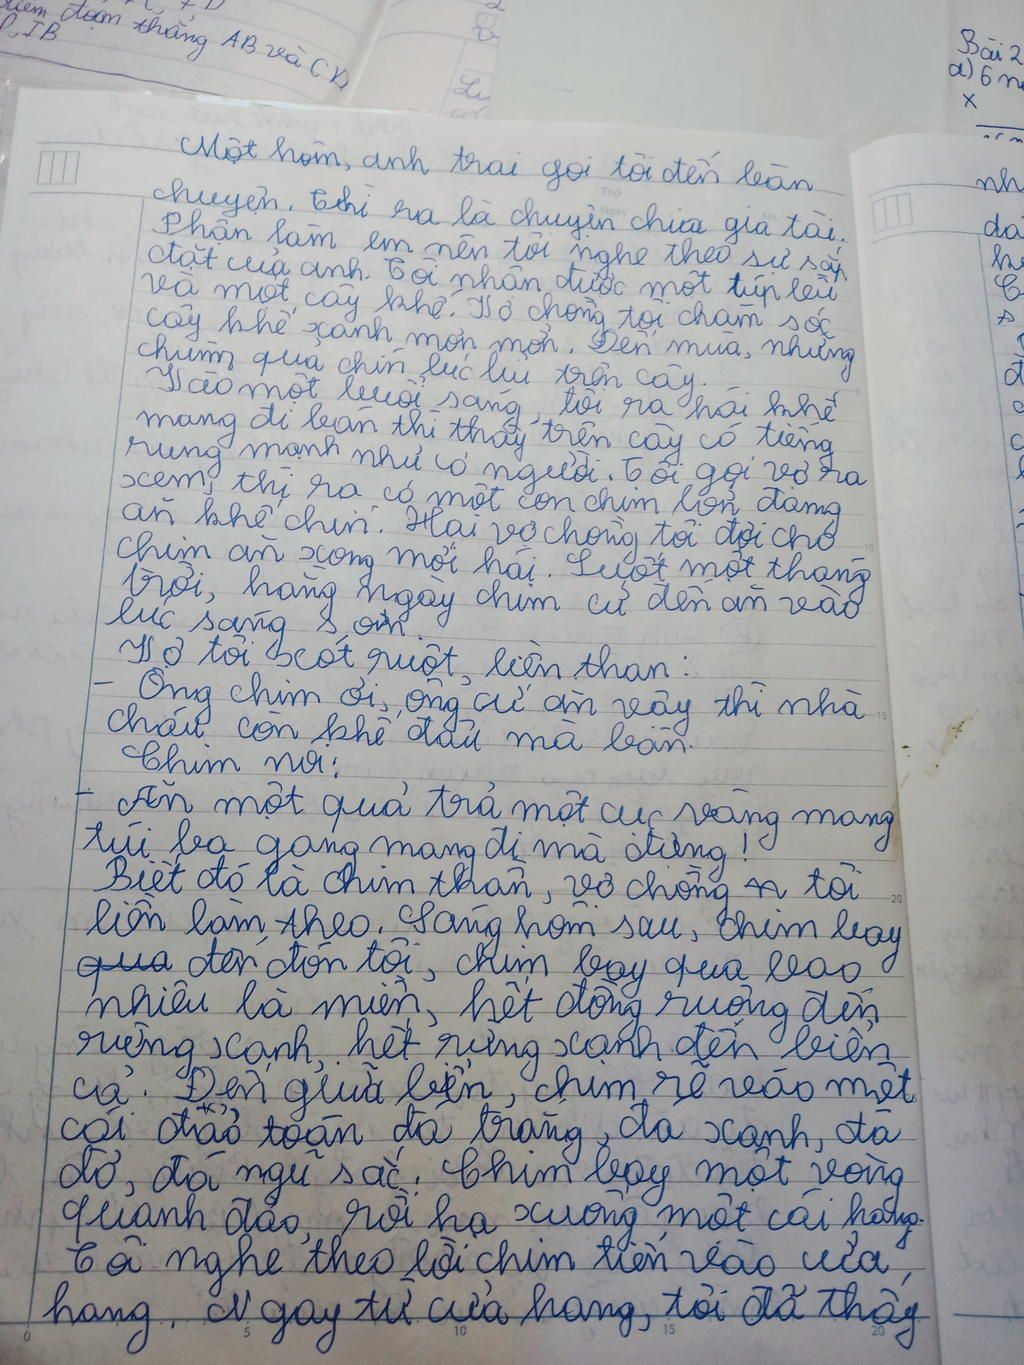 điểm đoạn thẳng AB và CD
IB
Bài 2
a) 6
x
Một hôm, anh trai gọi tôi đến bàn
chuyện. Thì ra là chuyện chia gia tài.
Phận làm em nên tôi nghe theo sự sắp
đặt của anh. Tôi nhận được một túp lều
và một cây khế. Vợ chồng tôi chăm sóc
cây khế xanh mơn mởn. Đến mùa, những
chùm quả chín lúc lỉu trên cây.
Vào một buổi sáng, tôi ra hái khế
mang đi bán thì thấy trên cây có tiếng
rung mạnh như có người. Tôi gọi vợ ra
xem, thì ra có một con chim lớn đang
ăn khế chín. Hai vợ chồng tôi đợi cho
chim ăn xong mới hái. Suốt một tháng
trời, hằng ngày chim cứ đến ăn vào
lúc sáng sớm.
Vợ tôi xót ruột, liền than:
- Ông chim ơi, ông cứ ăn vậy thì nhà
cháu còn khế đâu mà bán.
Chim nói:
- Ăn một quả trả một cục vàng mang
túi ba gang mang đi mà đựng!
Biết đó là chim thần, vợ chồng tôi
liền làm theo. Sáng hôm sau, chim bay
qua đến đón tôi, chim bay qua bao
nhiêu là miền, hết đồng ruộng đến
rừng xanh, hết rừng xanh đến biển
cả. Đến giữa biển, chim rẽ vào một
cái đảo toàn đá trắng, đá xanh, đá
đỏ, đá ngũ sắc. Chim bay một vòng
quanh đảo, rồi hạ xuống một cái hang.
Tôi nghe theo lời chim tiến vào cửa
hang. Ngay từ cửa hang, tôi đã thấy